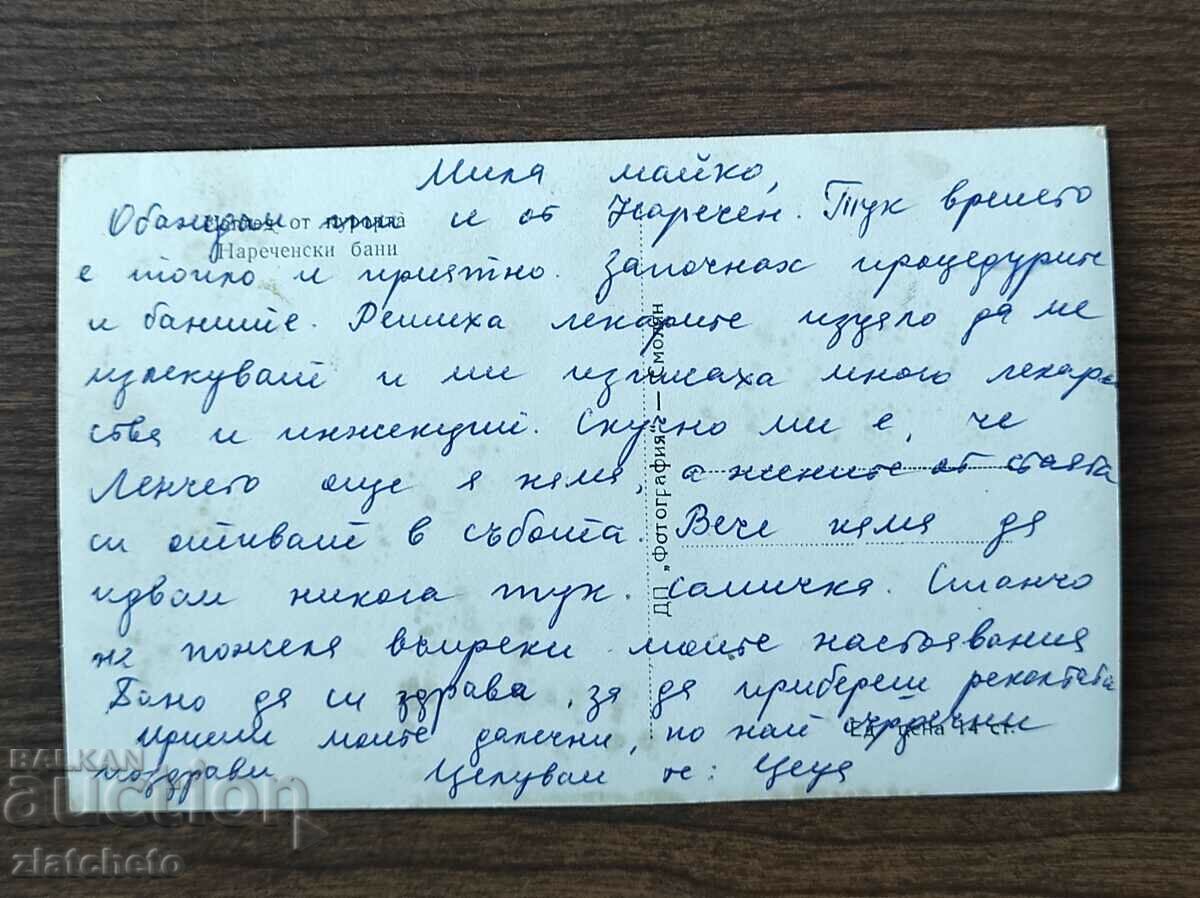 Мила майко,
Обаждам и от Наречен. Тук времето
от курорта
Нареченски бани
е топло и приятно. Започнах процедурите
и баните. Решиха лекарите изцяло да ме
излекуват и ми изписаха много лекар
ства и инжекции. Скучно ми е, че
Ленчето още я няма, а жените от стаята
си отиват в събота. Вече няма да
идвам никога тук самичка. Станчо
не пожела въпреки моите настоявания
Бано да си здрава, за да прибереш реколтата
Приеми моите далечни, но най сърдечни
поздрави Целувам те: Цеца
ДП „Фотография" — Смолян
Ед. цена 14 ст.
BALKAN
auction
zlatcheto